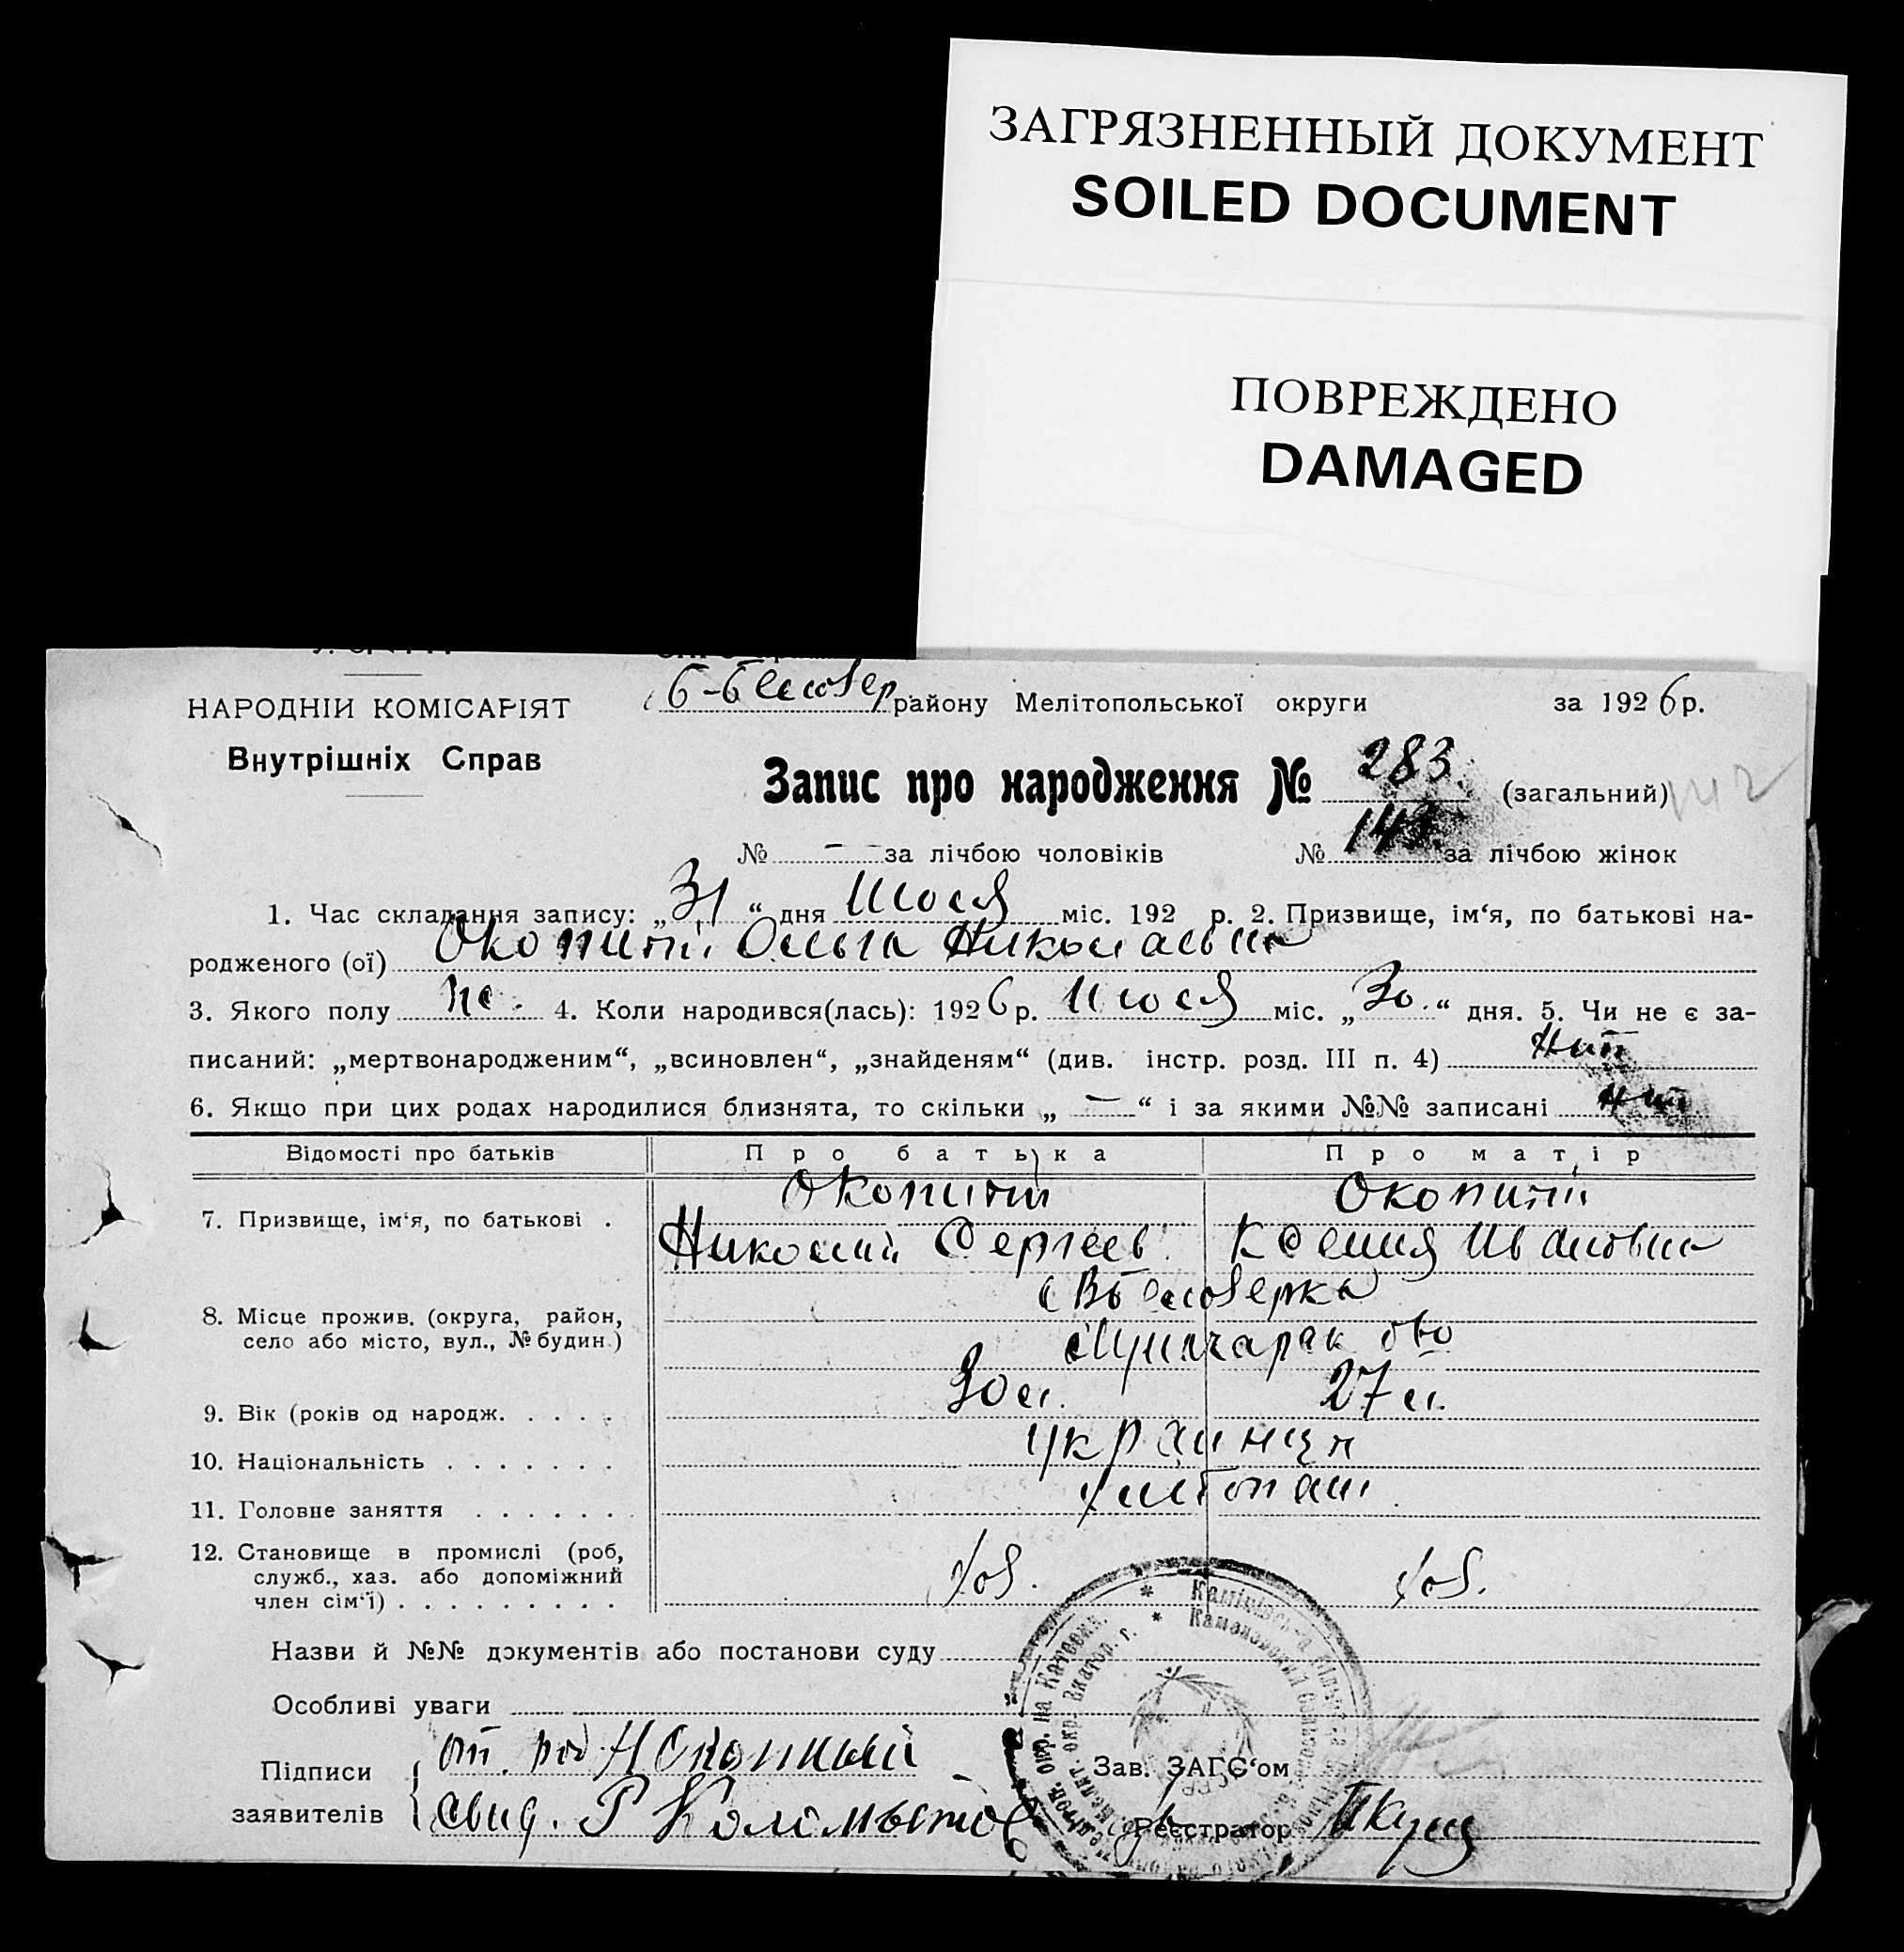 ЗАГРЯЗНЕННЫЙ ДОКУМЕНТ
SOILED DOCUMENT
ПОВРЕЖДЕНО
DAMAGED
НАРОДНІЙ КОМІСАРІЯТ
Внутрішніх Справ
району Мелітопольської округи за 1926 р.
Запис про народження № 283. (загальний) 142
№ — за лічбою чоловіків № за лічбою жінок
1. Час складання запису: „31“ дня Июля міс. 192 р. 2. Призвище, ім‘я, по батькові на-
родженого (ої) Окопний Ольга Николаевна
3. Якого полу 4. Коли народився(лась): 1926 р. Июля міс. „30.“ дня. 5. Чи не є за-
писаний: „мертвонародженим“, „всиновлен“, „знайденям“ (див. інстр. розд. III п. 4) нет
6. Якщо при цих родах народилися близнята, то скільки „—“ і за якими №№ записані нет
Відомості про батьків Про батька Про матір
7. Призвище, ім‘я, по батькові . Окопний Окопний
Николай Сергеев Ксения Ивановна
8. Місце прожив. (округа, район, Белозерка
село або місто, вул., № будин.)
9. Вік (років од народж. . . . . 30 л. 27 л.
10. Національність . . . . . . . украинцы
11. Головне заняття . . . . . . . хлебопаш
12. Становище в промислі (роб, хоз. хоз.
служб., хаз. або допоміжний
член сім‘ї) . . . . . . . . .
Назви й №№ документів або постанови суду
Особливі уваги
Підписи от. род Н Окопный Зав. ЗАГС‘ом
заявителів свид. Р Реєстратор